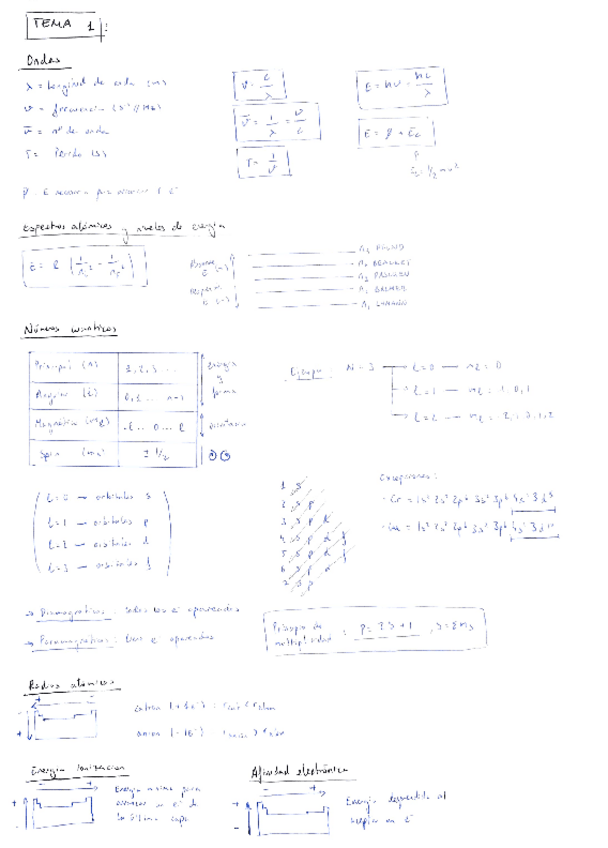 TEMA 1:
Ondas
λ = longitud de onda (m)
ν = frecuencia (s⁻¹ // Hz)
ν̄ = nº de onda
T = Periodo (s)
ν = c/λ
ν̄ = 1/λ = ν/c
T = 1/ν
E = hν = hc/λ
E = φ + Ec
Ec = 1/2 mv²
Espectros atómicos y niveles de energía
E = R (1/n₁² - 1/n₂²)
PFUND
BRACKET
PASCHEN
BALMER
LYMANN
Números cuánticos
Principal (n)
Angular (l) 0, 1 ... n-1
Magnético (ml) -l ... 0 ... l
Spin (ms) ± 1/2
energía y forma
orientación
Ejemplo: N = 3
l=0 — ml = 0
l=1 — ml = -1, 0, 1
l=2 — ml =
l=0 → orbitales s
l=1 → orbitales p
l=2 → orbitales d
l=3 → orbitales f
1 s
2 s p
3 s p d
4 s p d f
5 s p d f
6 s p d
7 s p
Excepciones:
Cr = 1s² 2s² 2p⁶ 3s² 3p⁶ 4s¹ 3d⁵
Cu = 1s² 2s² 2p⁶ 3s² 3p⁶ 4s¹ 3d¹⁰
→ Diamagnéticos: todos los e⁻ apareados
→ Paramagnéticos:
Principio de multiplicidad = p = 2S + 1
Radios atómicos
catión
anión
Energía Ionización
Energía mínima para arrancar un e⁻ de la última capa
Afinidad electrónica
Energía desprendida al aceptar un e⁻